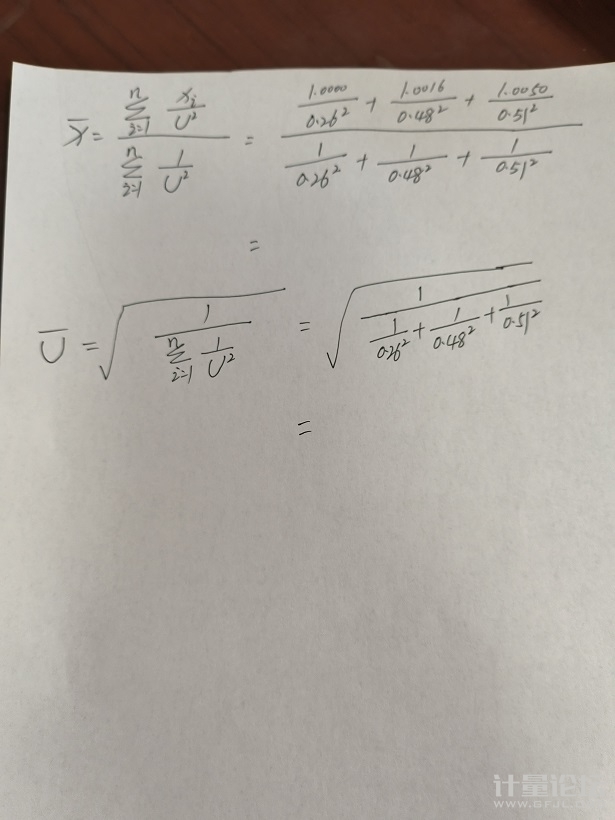 x̄ = (∑_{i=1}^{n} x_i/U²)/(∑_{i=1}^{n} 1/U²) = (1.0000/0.26² + 1.0016/0.48² + 1.0050/0.51²)/(1/0.26² + 1/0.48² + 1/0.51²)
=
Ū = √(1/(∑_{i=1}^{n} 1/U²)) = √(1/(1/0.26² + 1/0.48² + 1/0.51²))
=
计量论坛